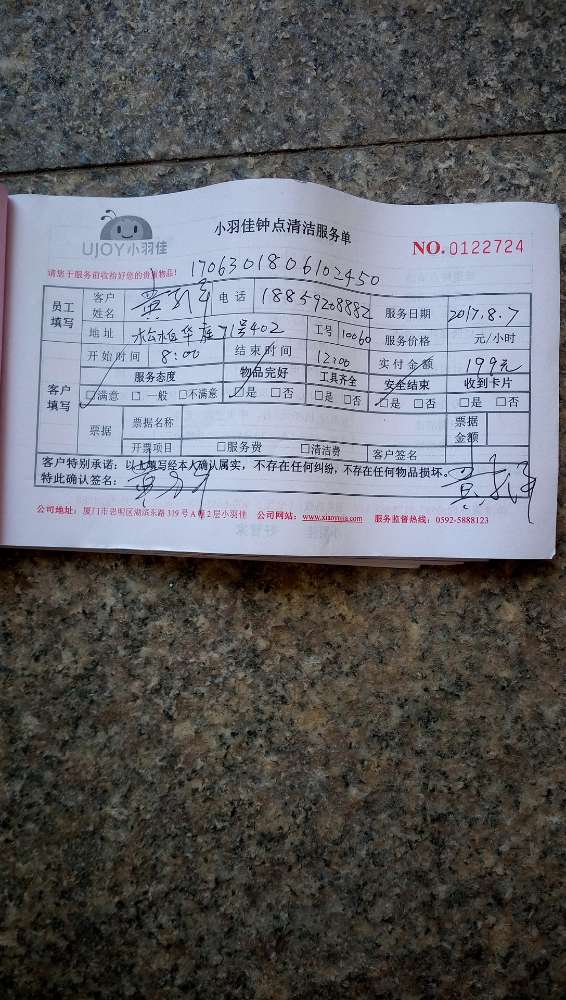 UJOY小羽佳
小羽佳钟点清洁服务单
NO.0122724
请您于服务前收拾好您的贵重物品!
1706301806102450
员工填写 客户姓名 黄 电话 18859208882 服务日期 2017.8.7
地址 71号402 工号 10060 服务价格 元/小时
客户填写 开始时间 8:00 结束时间 12:00 实付金额 199元
服务态度 物品完好 工具齐全 安全结束 收到卡片
□满意 □一般 □不满意 □是 □否 □是 □否 □是 □否 □是 □否
票据 票据名称 票据金额
开票项目 □服务费 □清洁费 客户签名
客户特别承诺:以上填写经本人确认属实,不存在任何纠纷,不存在任何物品损坏。
特此确认签名: 黄 黄
公司地址:厦门市思明区湖滨东路319号A幢2层小羽佳 公司网站:www.xiaoyujia.com 服务监督热线:0592-5888123